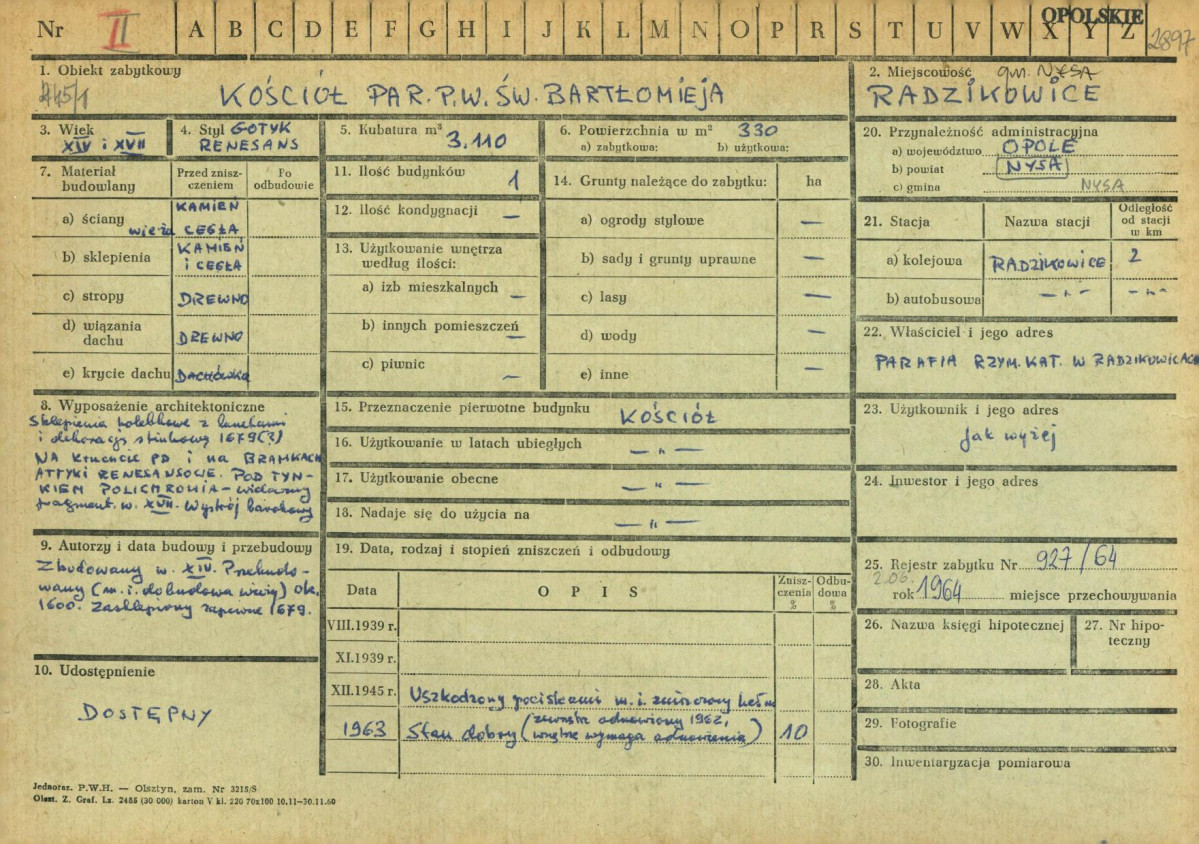 Nr II A B C D E F G H I J K L M N O P R S T U V W X Y Z
OPOLSKIE
2897
1. Obiekt zabytkowy
KOŚCIÓŁ PAR. P.W. ŚW. BARTŁOMIEJA
2. Miejscowość gm. NYSA
RADZIKOWICE
3. Wiek
XIV i XVII
4. Styl GOTYK
RENESANS
5. Kubatura m³
3.110
6. Powierzchnia w m² 330
a) zabytkowa: b) użytkowa:
20. Przynależność administracyjna
a) województwo OPOLE
b) powiat NYSA
c) gmina NYSA
7. Materiał
budowlany
Przed znisz-
czeniem
Po
odbudowie
a) ściany KAMIEŃ
wieża CEGŁA
b) sklepienia KAMIEŃ
i CEGŁA
c) stropy DREWNO
d) wiązania
dachu DREWNO
e) krycie dachu DACHÓWKA
11. Ilość budynków 1
12. Ilość kondygnacji —
13. Użytkowanie wnętrza
według ilości:
a) izb mieszkalnych —
b) innych pomieszczeń —
c) piwnic —
14. Grunty należące do zabytku: ha
a) ogrody stylowe —
b) sady i grunty uprawne —
c) lasy —
d) wody —
e) inne —
21. Stacja Nazwa stacji
Odległość
od stacji
w km
a) kolejowa RADZIKOWICE 2
b) autobusowa — „ — — „ —
22. Właściciel i jego adres
PARAFIA RZYM. KAT. W RADZIKOWICACH
8. Wyposażenie architektoniczne
Sklepienia kolebkowe z lunetami
i dekoracją stiukową 1679(?)
NA kruchcie PD i na BRAMKACH
ATTYKI RENESANSOWE. POD TYN-
KIEM POLICHROMIA – widoczny
fragment. w. XVII. Wystrój barokowy
15. Przeznaczenie pierwotne budynku KOŚCIÓŁ
16. Użytkowanie w latach ubiegłych — „ —
17. Użytkowanie obecne — „ —
18. Nadaje się do użycia na — „ —
23. Użytkownik i jego adres
jak wyżej
24. Inwestor i jego adres
9. Autorzy i data budowy i przebudowy
Zbudowany w. XIV. Przebudo-
wany (m. i. dobudowa wieży) ok.
1600. Zasklepiony zapewne 1679.
10. Udostępnienie
DOSTĘPNY
19. Data, rodzaj i stopień zniszczeń i odbudowy
Data OPIS
Znisz-
czenia
%
Odbu-
dowa
%
VIII.1939 r.
XI.1939 r.
XII.1945 r. Uszkodzony pociskami m. i. zniszczony hełm
1963 Stan dobry (zewnątrz odnowiony 1962,
wnętrze wymaga odnowienia) 10
25. Rejestr zabytku Nr 927/64
2.06.
rok 1964 miejsce przechowywania
26. Nazwa księgi hipotecznej
27. Nr hipo-
teczny
28. Akta
29. Fotografie
30. Inwentaryzacja pomiarowa
Jednoraz. P.W.H. — Olsztyn, zam. Nr 3215/S
Olszt. Z. Graf. Lz. 2485 (30 000) karton V kl. 220 70x100 10.11—30.11.60